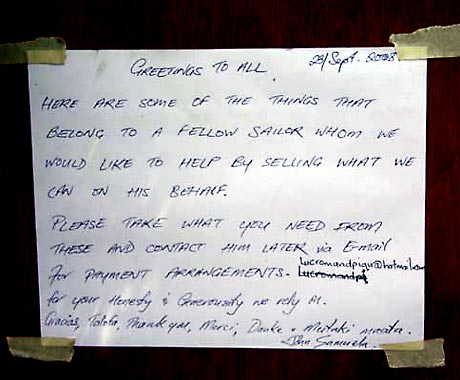 23/Sept. 2008
GREETINGS TO ALL.
HERE ARE SOME OF THE THINGS THAT
BELONG TO A FELLOW SAILOR WHOM WE
WOULD LIKE TO HELP BY SELLING WHAT WE
CAN ON HIS BEHALF.
PLEASE TAKE WHAT YOU NEED FROM
THESE AND CONTACT HIM LATER via E-mail
for PAYMENT ARRANGEMENTS. lucromandpigu@hotmail.com
for your Honesty & Generousity we rely
Gracias, Thank you, Merci, Danke
John